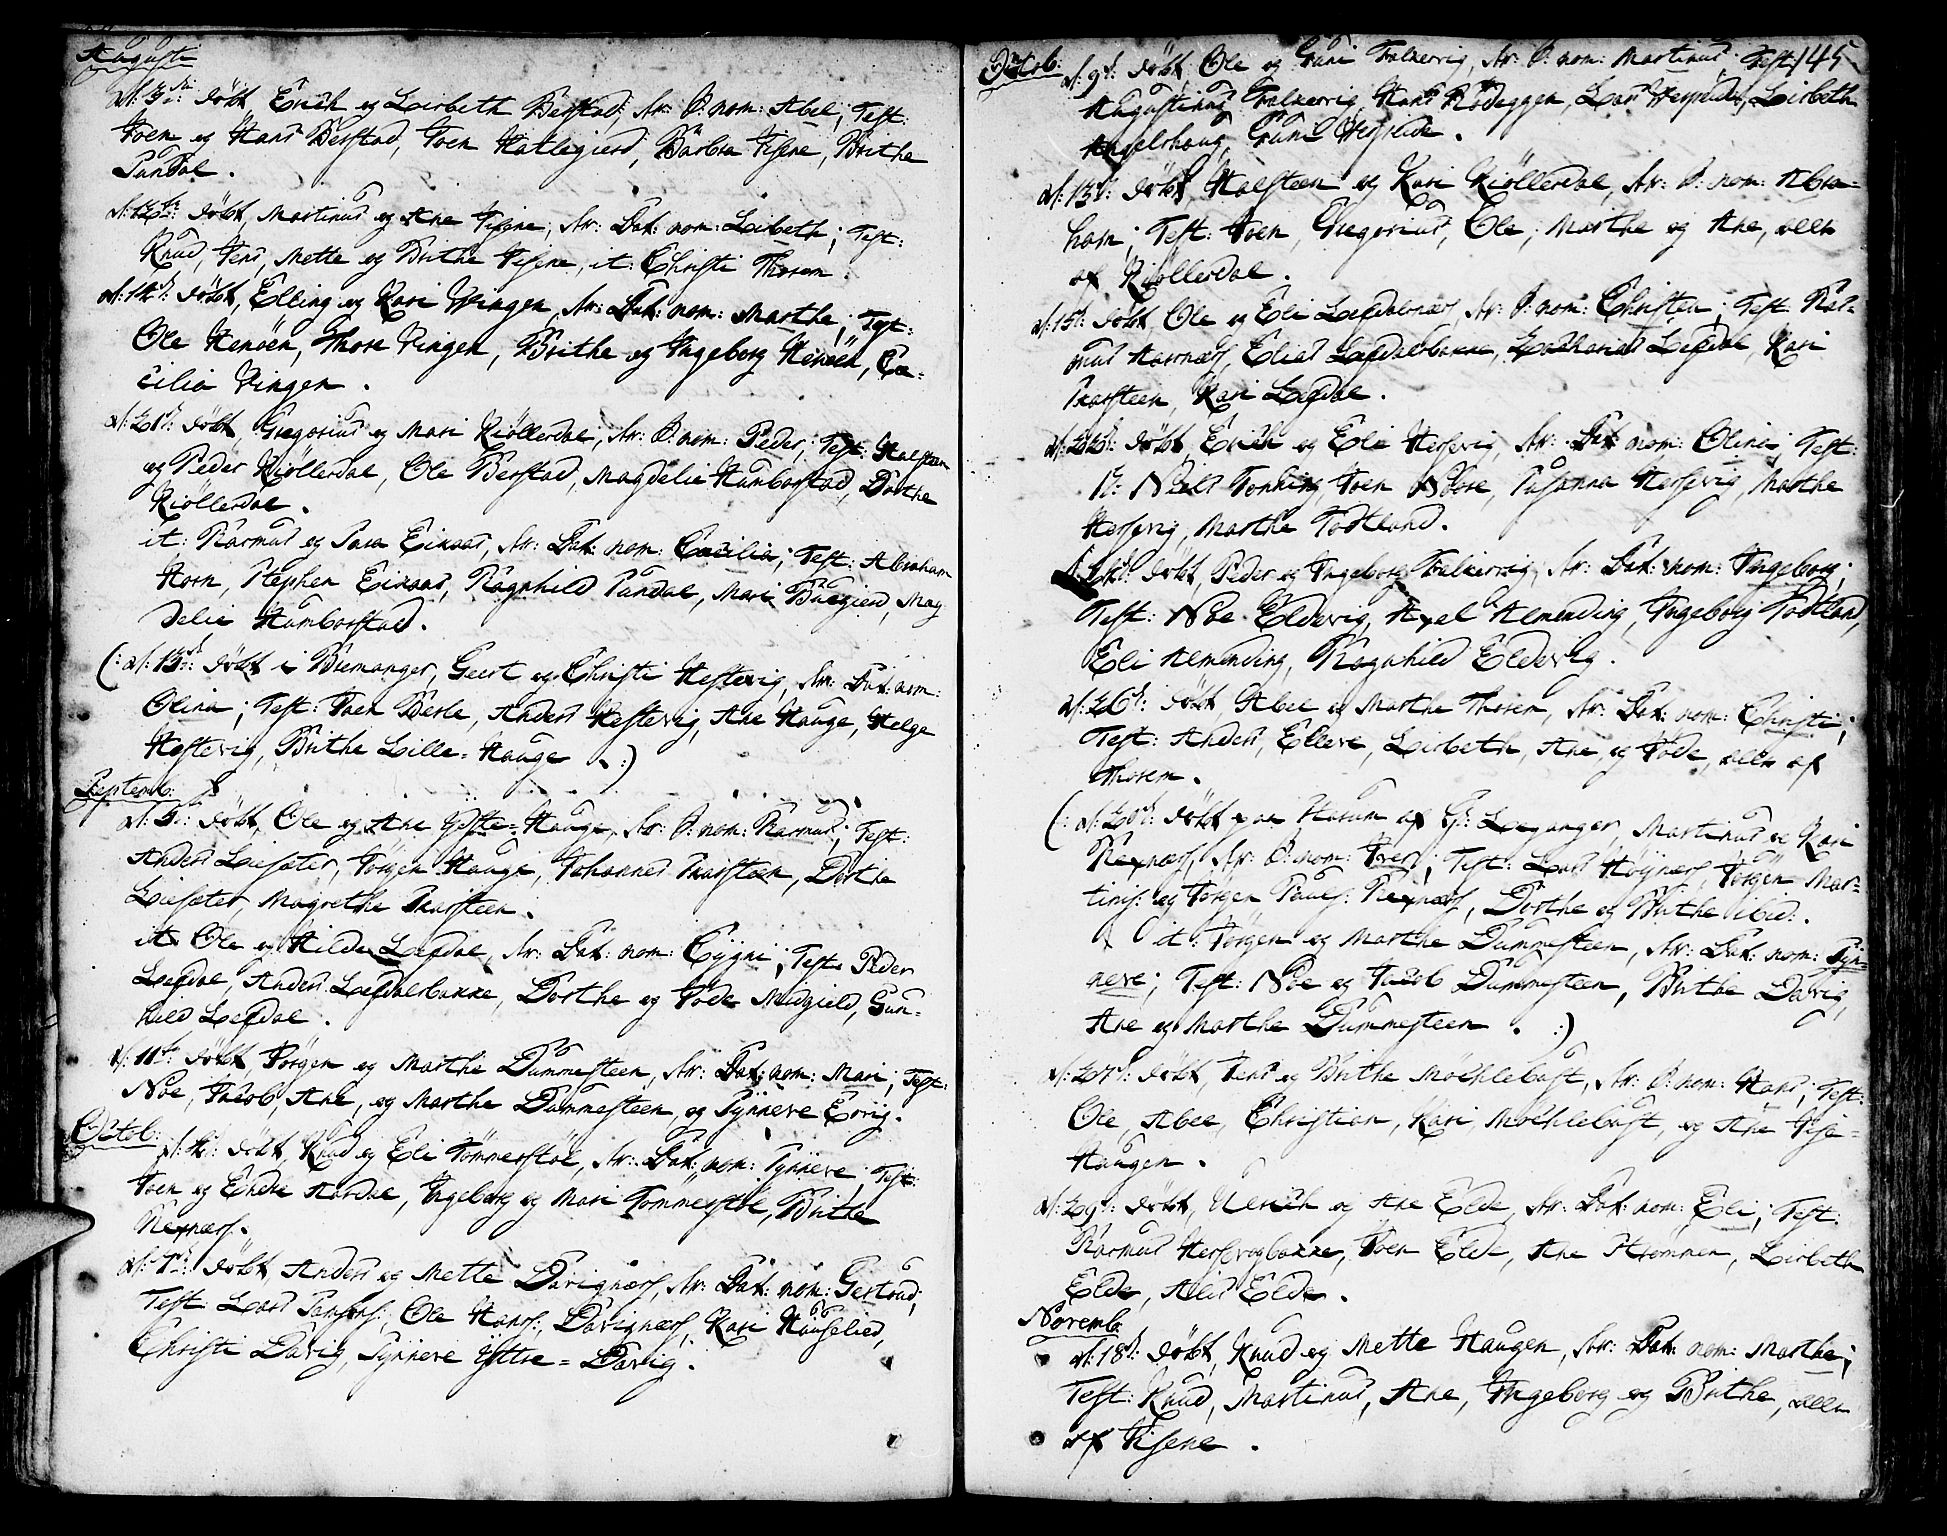 Augusti
d: 3die: døbt, Erich og Lisbeth Berstad, Ar: S: nom: Abel; Test:
Joen og Hans Berstad, Joen Hatlegierd, Barbra Visene, Brithe
Sundal.
d: 12te: døbt, Martinus og Ane Visene, Ar: Dat: nom: Lisbeth; Test:
Knud, Jens, Mette og Brithe Visene, it: Christi Thorem.
d: 14d: døbt, Elling og Kari Vingen, Ar: Dat: nom: Marthe; Test:
Ole Henøen, Thore Vingen, Brithe og Ingeborg Henøen, Ce-
cilia Vingen.
d: 21d: døbt, Gregorius og Mari Kiøllerdal, Ar: S: nom: Peder; Test: Halsteen
og Peder Kiøllerdal, Ole Berstad, Magdelie Humborstad, Dorthe
Kiøllerdal.
it: Rasmus og Sara Eikaas, Ar: Dat: nom: Cecilia; Test: Abraham
Horn, Stephen Eikaas, Ragnhild Sundal, Mari Buegierd, Mag
delie Humborstad.
(: d: 15d: døbt i Bremanger, Geert og Christi Hestevig, Ar: Dat: nom:
Olina; Test: Joen Berle, Anders Hestevig, Ane Hauge, Helge
Hestevig, Brithe Lille-Hauge. :)
Septemb:
d: 5te: døbt, Ole og Ane Ydste-Hauge, Ar: S: nom: Rasmus; Test:
Anders Liesæter, Jørgen Hauge, Johannes Skarsteen, Dorthe
Liesæter, Magrethe Skarsteen.
it: Ole og Hilde Lefdal, Ar: Dat: nom: Cygni; Test: Peder
Lefdal, Anders Lefdalsbakke, Dorthe og Jode Midgield, Gun-
hild Lefdal.
d: 11te: døbt, Jørgen og Marthe Dummesteen, Ar: Dat: nom: Mari; Test:
Noe, Jacob, Ane, og Marthe Dummesteen, og Synneve Ervig.
Octob:
d: 4d: døbt, Knud og Eli Tømmerstøl, Ar: Dat: nom: Synneve; Test:
Joen og Endre Aardal, Ingeborg og Mari Tømmerstøl, Brithe
Rexnæs.
d: 7de: døbt, Anders og Mette Davignæs, Ar: Dat: nom: Gertrud;
Test: Lars Jansøs:, Ole Hans:, Davignæs, Kari Hauselied,
Christi Davig, Synneve Yttre-Davig.
Octob: d: 9d: døbt, Ole og Guri Falkevig, Ar: S: nom: Martinus; Test: 145
Augustinus Falkevig, Hans Rødeggen, Lars Hesvide, Lisbeth
Angelshaug, Guri Hesvide.
d: 13d: døbt, Halsteen og Kari Kiøllerdal, Ar: S: nom: Abra-
ham; Test: Joen, Gregorius, Ole, Marthe og Ane, alle
af Kiøllerdal.
d: 15d: døbt, Ole og Eli Lefdalsnæs, Ar: S: nom: Christen; Test: Ras-
mus Aarnæs, Elias Lefdalsbakke, Zacharias Lefdal, Kari
Skarsteen, Kari Lefdal.
d: 22d: døbt, Erich og Eli Hersvig, Ar: Dat: nom: Olina; Test:
Sr: Niels Tonning, Joen Nøre, Susanna Hersvig, Marthe
Hersvig, Marthe Todtland.
d: 24d: døbt, Peder og Ingeborg Falkevig, Ar: Dat: nom: Ingeborg;
Test: Noe Eldevig, Axel Almending, Ingeborg Todtland,
Eli Almending, Ragnhild Eldevig.
d: 26d: døbt, Abel og Marthe Thorem, Ar: Dat: nom: Christi;
Test: Anders, Elleve, Lisbeth, Ane, og Jode, alle af
Thorem.
(: d: 20d: døbt paa Husum af Hr: Leganger, Martinus og Kari
Rexnæs, Ar: S: nom: Iver; Test: Lars Høynæs, Jørgen Mar-
tins: og Jørgen Pauls: Rexnæs, Dorthe og Brithe ibid:.
it: Jørgen og Marthe Dummesteen, Ar: Dat: nom: Syn-
neve; Test: Noe og Jacob Dummesteen, Brithe Davig,
Ane og Marthe Dummesteen. :)
d: 27d: døbt, Jens og Brithe Mochlebust, Ar: S: nom: Hans; Test:
Ole, Abel, Christian, Kari Mochlebust, og Ane Vise-
Haugen.
d: 29d: døbt, Ulrich og Ane Elde, Ar: Dat: nom: Eli; Test:
Rasmus Hersvigbakke, Joen Elde, Ane Strømmen, Lisbeth
Elde, Alis Elde.
Novemb:
d: 18d: døbt, Knud og Mette Haugen, Ar: Dat: nom: Marthe;
Test: Knud, Martinus, Ane, Ingeborg og Brithe, alle
af Visene.